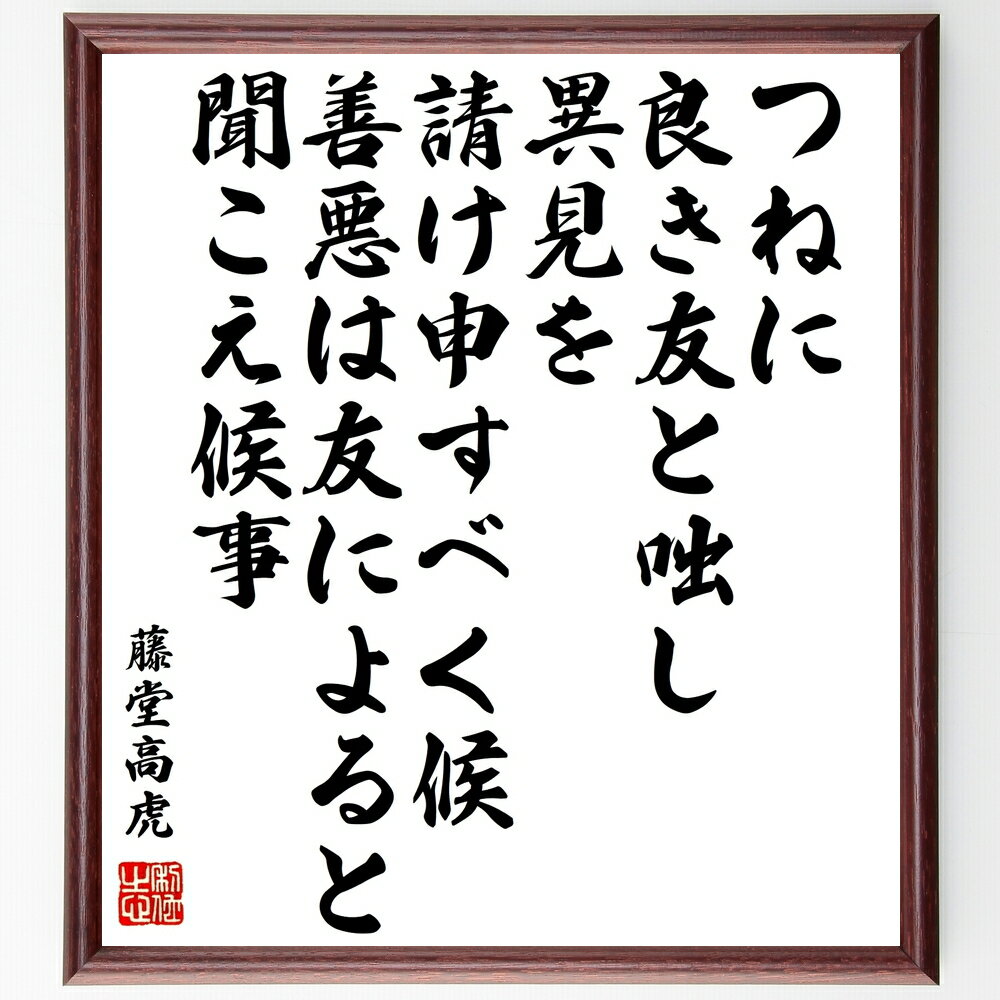 つねに
良き友と咄し
異見を
請け申すべく候
善悪は友によると
聞こえ候事
藤堂高虎